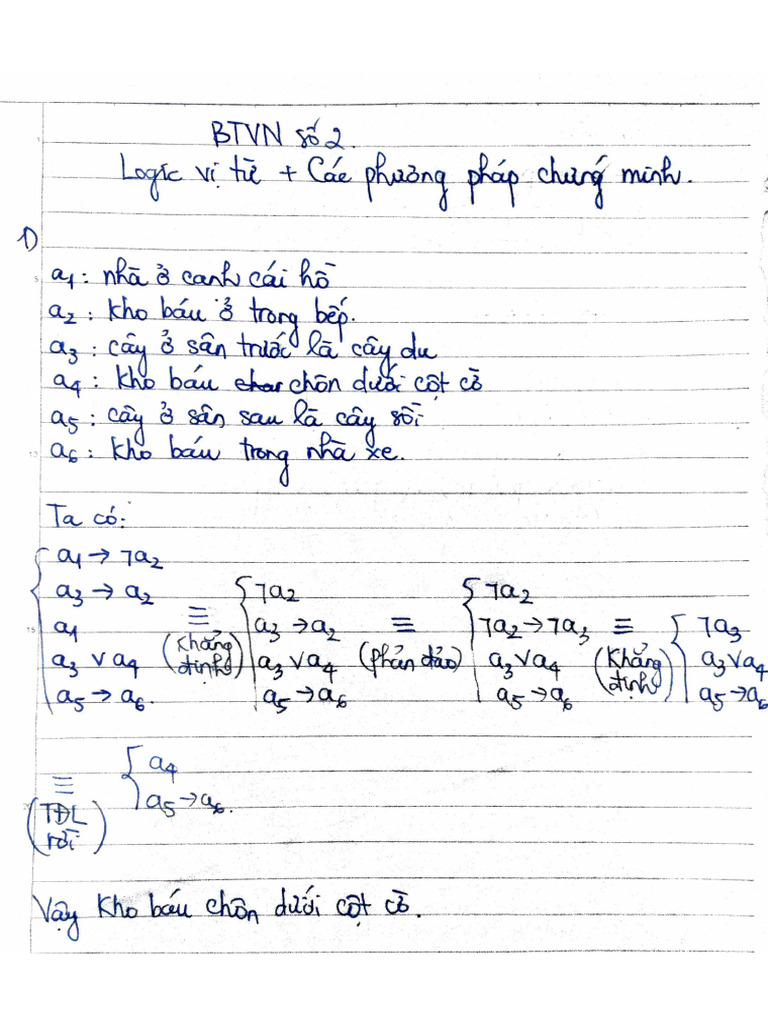 BTVN số 2.
Logic vị từ + Các phương pháp chứng minh.
1)
a1 : nhà ở cạnh cái hồ
a2 : kho báu ở trong bếp.
a3 : cây ở sân trước là cây du
a4 : kho báu chôn dưới cột cờ
a5 : cây ở sân sau là cây sồi
a6 : kho báu trong nhà xe.
Ta có:
a1 → ¬a2
a3 → a2
a1
a3 ∨ a4
a5 → a6.
≡
(Khẳng định)
¬a2
a3 → a2
a3 ∨ a4
a5 → a6
≡
(phản đảo)
¬a2
¬a2 → ¬a3
a3 ∨ a4
a5 → a6
≡
(Khẳng định)
¬a3
a3 ∨ a4
a5 → a6
≡
(TĐL rời)
a4
a5 → a6.
Vậy kho báu chôn dưới cột cờ.